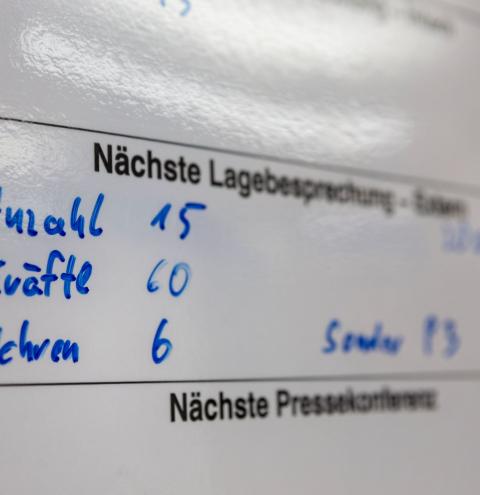 Nächste Lagebesprechung - Extern
nzahl 15
kräfte 60
ehren 6 Sonder
Nächste Pressekonferenz